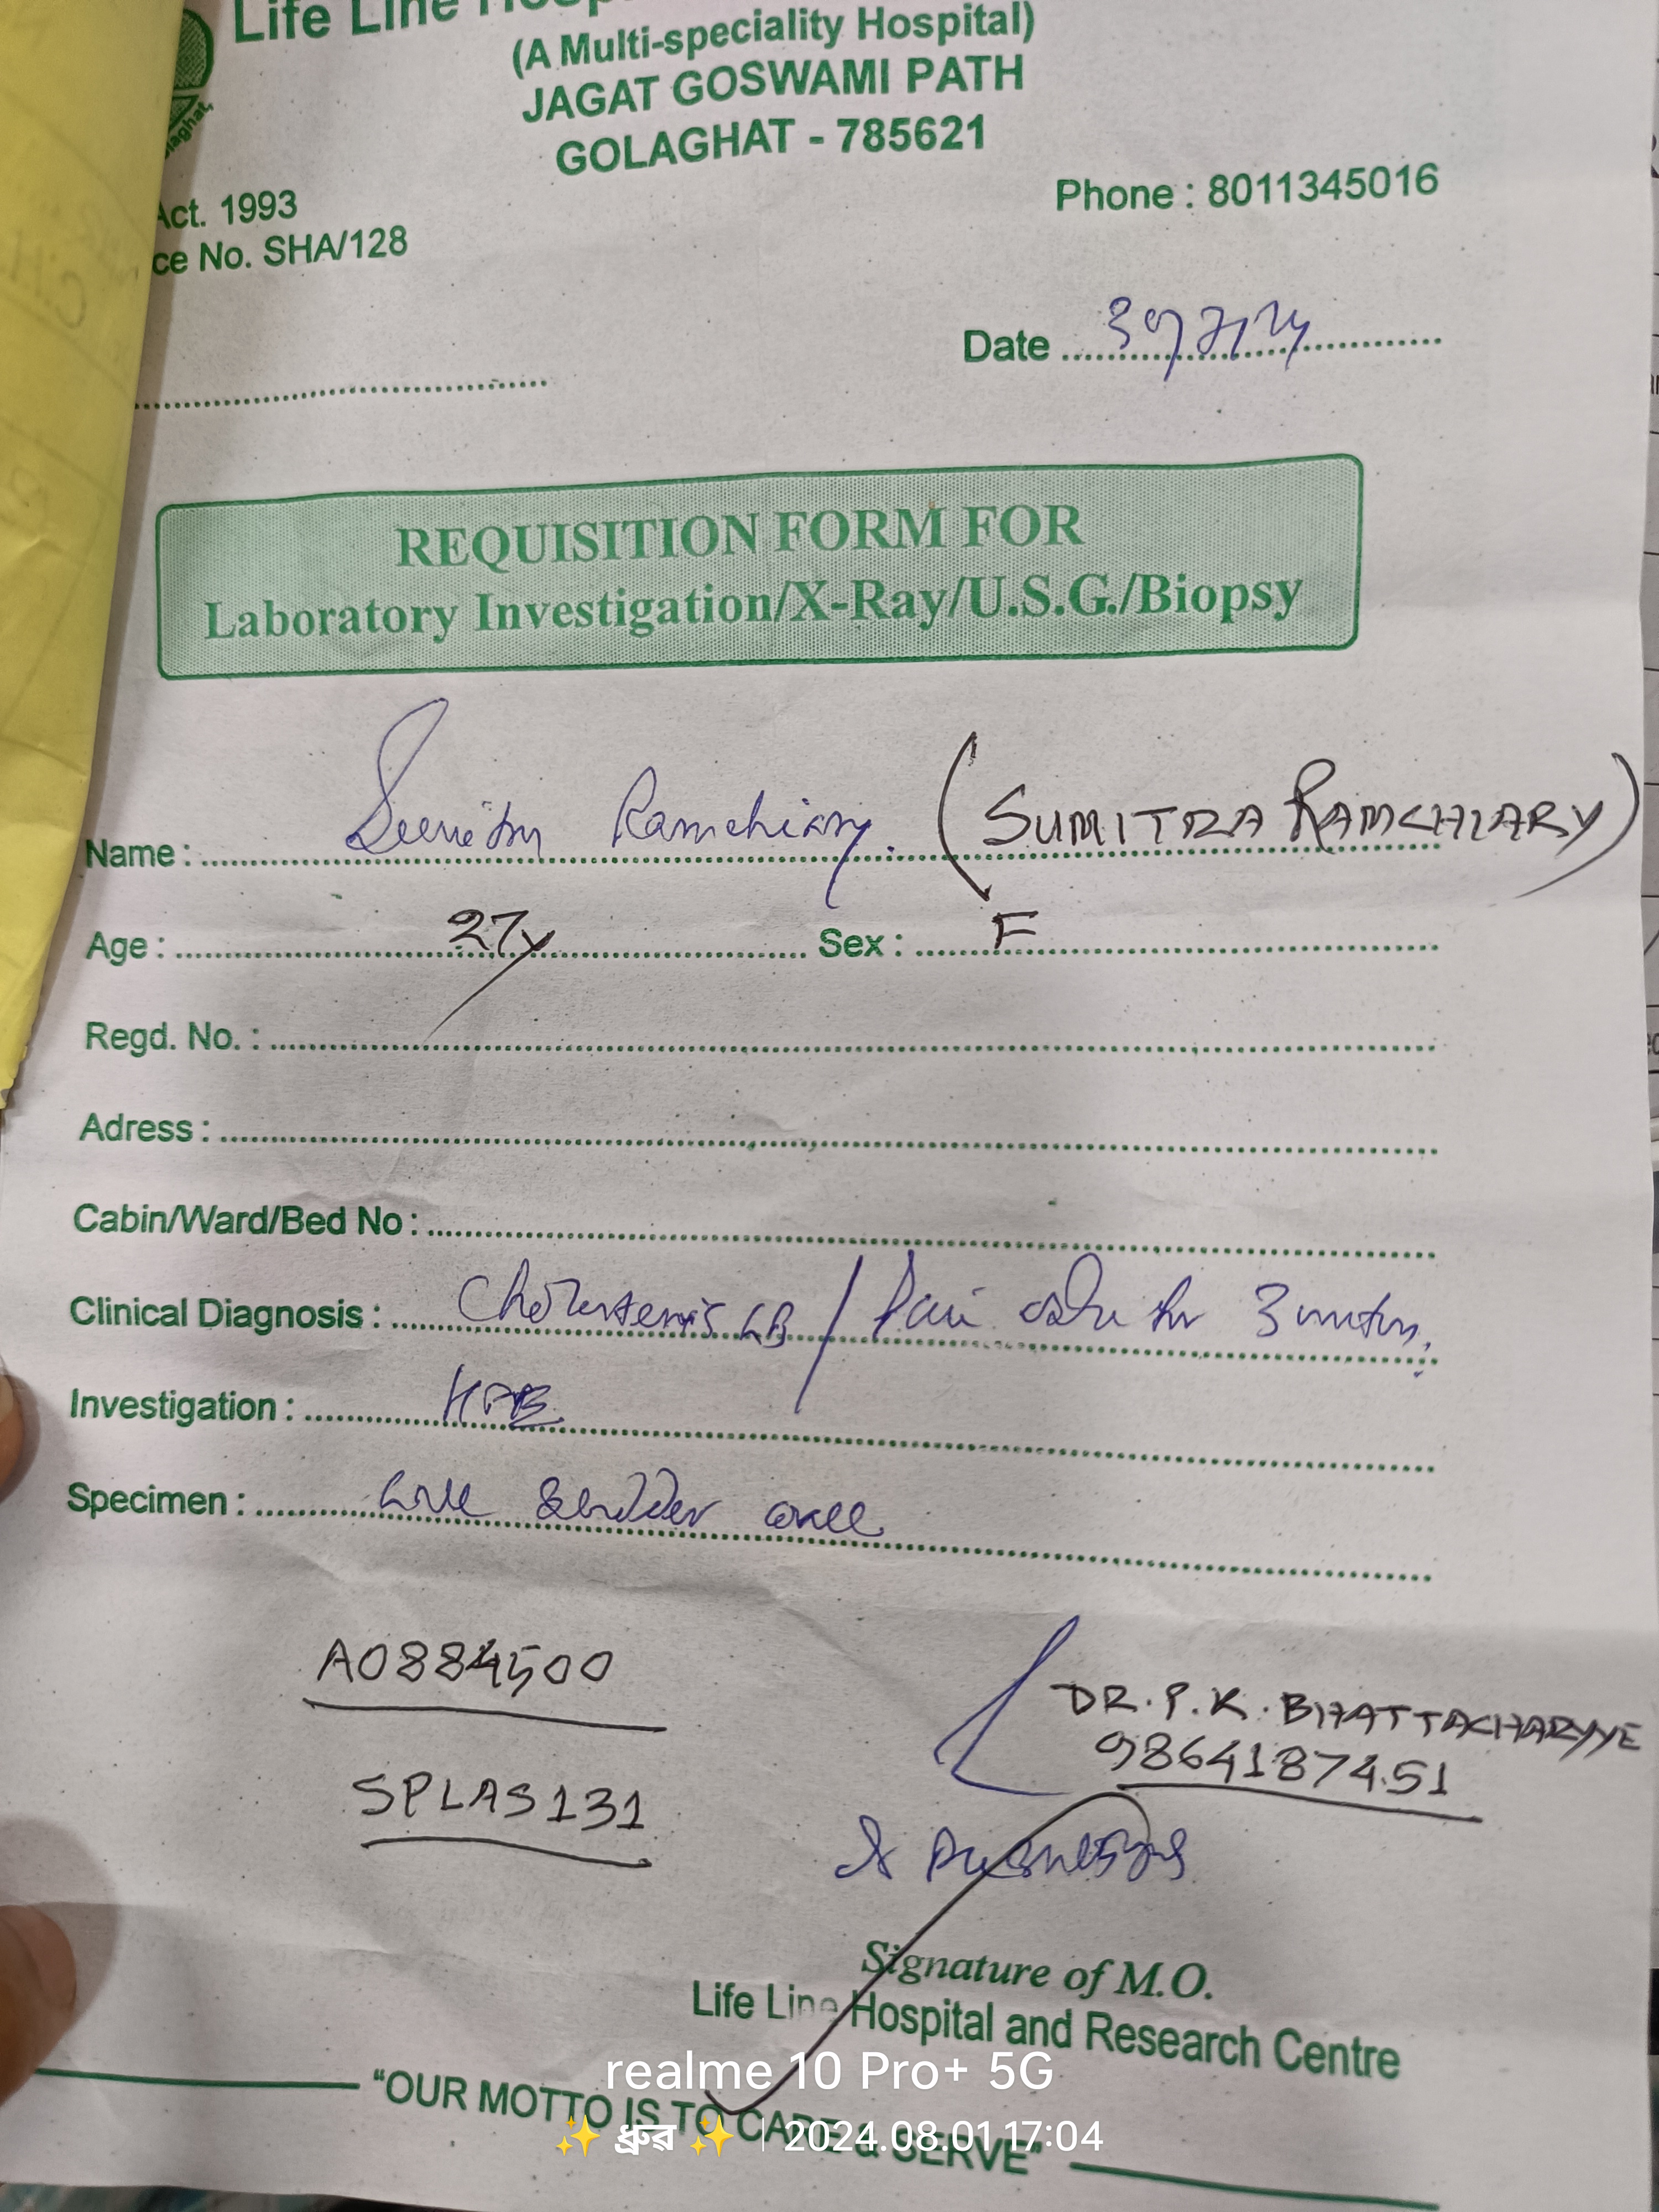 Life Line
(A Multi-speciality Hospital)
JAGAT GOSWAMI PATH
GOLAGHAT - 785621
Act. 1993
ce No. SHA/128
Phone : 8011345016
Date 30/7/24
REQUISITION FORM FOR
Laboratory Investigation/X-Ray/U.S.G./Biopsy
Name : Sumitra Ramchiary. (SUMITRA RAMCHIARY)
Age : 27y Sex : F
Regd. No. :
Adress :
Cabin/Ward/Bed No :
Clinical Diagnosis : / Pain 3 months.
Investigation : HPE
Specimen : bladder
A0884500
DR. P. K. BHATTACHARYYE
9864187451
SPLAS131
Signature of M.O.
Life Line Hospital and Research Centre
"OUR MOTTO IS TO CARE & SERVE"
realme 10 Pro+ 5G
✨ ধ্ৰুৱ ✨ | 2024.08.01 17:04